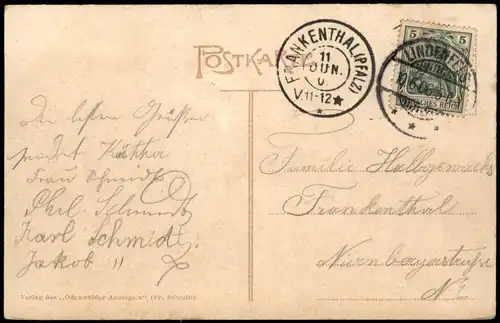 POSTKARTE
FRANKENTHAL (PFALZ)
11
JUN.
V.11-12
5 5
LINDENFELS
DEUTSCHES REICH
Die besten Grüsse
sendet Kätha
Frau Schmidt
Phil. Schmidt
Karl Schmidt
Jakob "
Familie
Frankenthal
Nürnbergerstraße
No
Verlag der „Odenwälder Anzeigen“ (Fr. Schmitt)